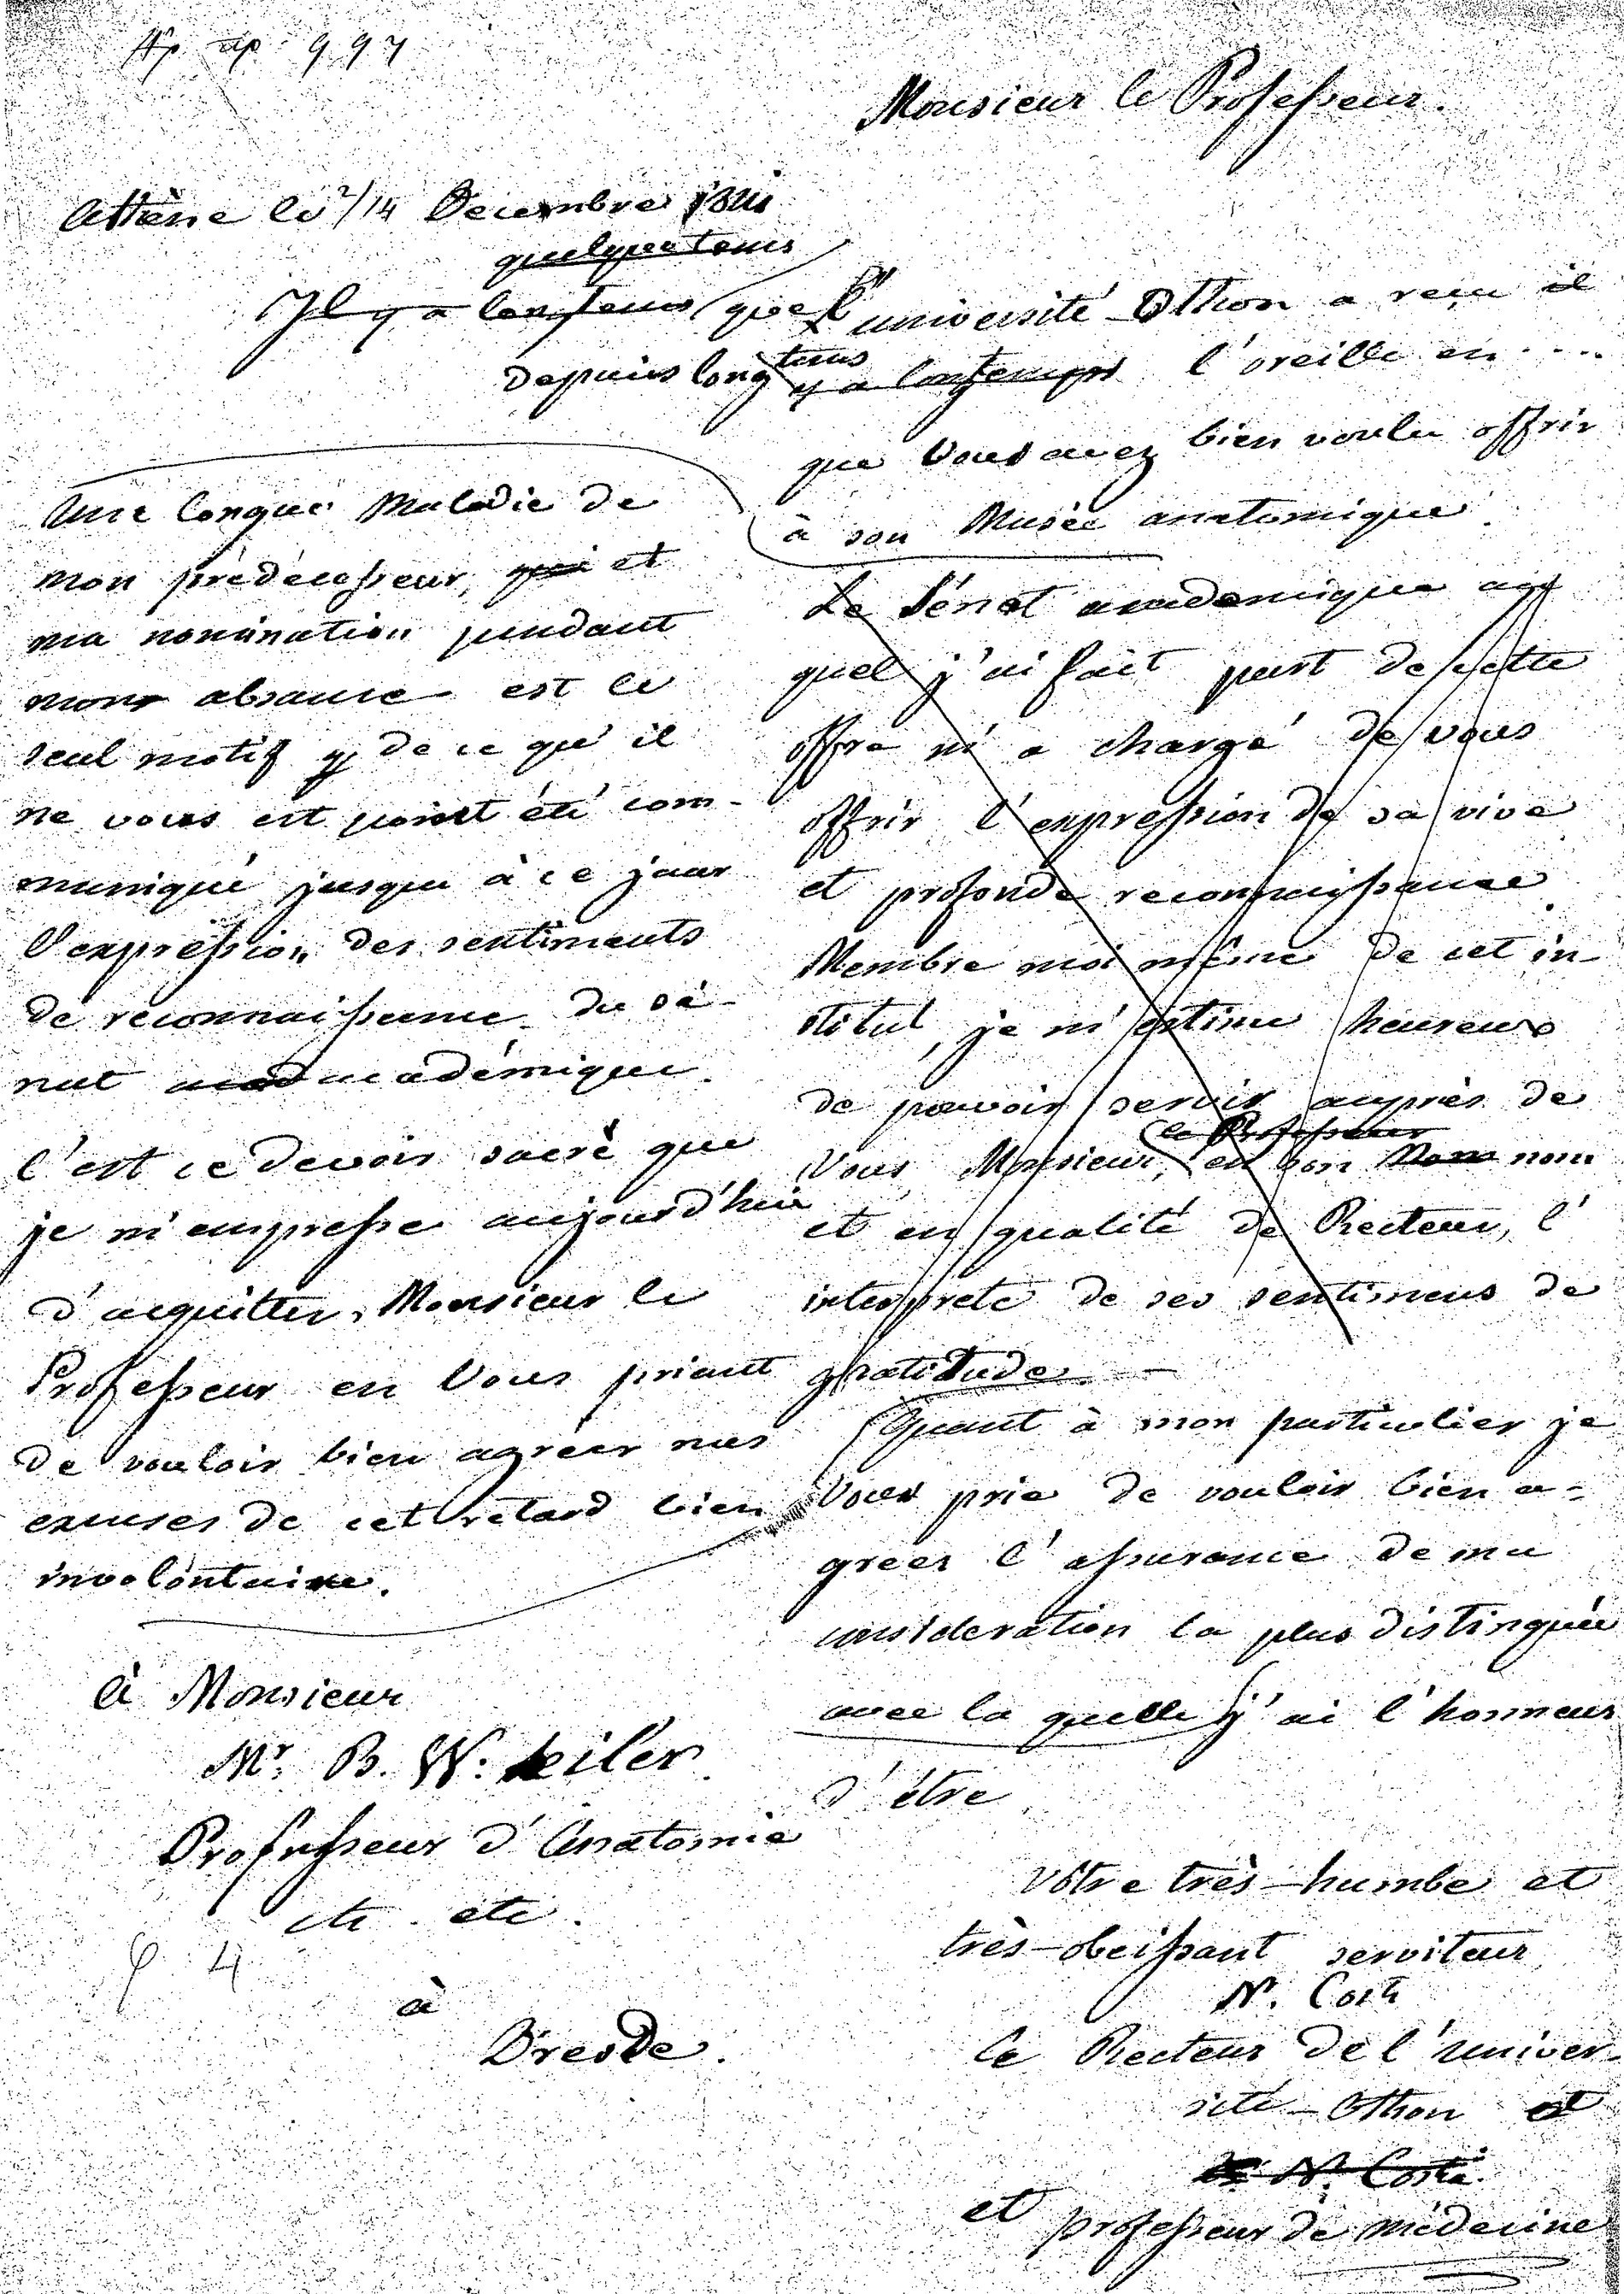 Αρ. πρ. 997
Monsieur le Professeur.
Athène le 2/14 Decembre
quelques tems
Il y a longtems que l'université Othon a reçu il
depuis longtems y a longtemps l'oreille en ....
que Vous avez bien voulu offrir
à son Musée anatomique.
Une longue Maladie de
mon prédécesseur, qui et
ma nomination pendant
mon absance est le
seul motif de ce qu'il
ne vous est point été com-
muniqué jusqu à ce jour
l'expression des sentiments
de reconnaissance du sé-
nat acad académique.
C'est ce devoir sacré que
je m'empresse aujourd'hui
d'acquitter, Monsieur le
Professeur en Vous priant
de vouloir bien agréer mes
excuses de cet retard bien
involontaire.
Le Sénat academique au
quel j'ai fait part de cette
offre m'a chargé de vous
offrir l'expression de sa vive
et profonde reconnaissance.
Membre moi même de cet in-
stitut, je m'estime heureux
de pouvoir servir auprès de
le Professeur
Vous Monsieur, en son Nom nom
et en qualité de Recteur, l'
interprete de ses sentimens de
gratitude. —
Quant à mon particulier je
Vous prie de vouloir bien a-
gréer l'assurance de ma
consideration la plus distinguée
avec la quelle j'ai l'honneur
d'étre
à Monsieur
Mr. B. W. Seiler
Professeur d'Anatomie
etc. etc.
à
Dresde.
Vôtre très-humbe et
très-obeissant serviteur
N. Costi
Le Recteur de l'univer-
sité-Othon et
N. Costi
et professeur de médecine